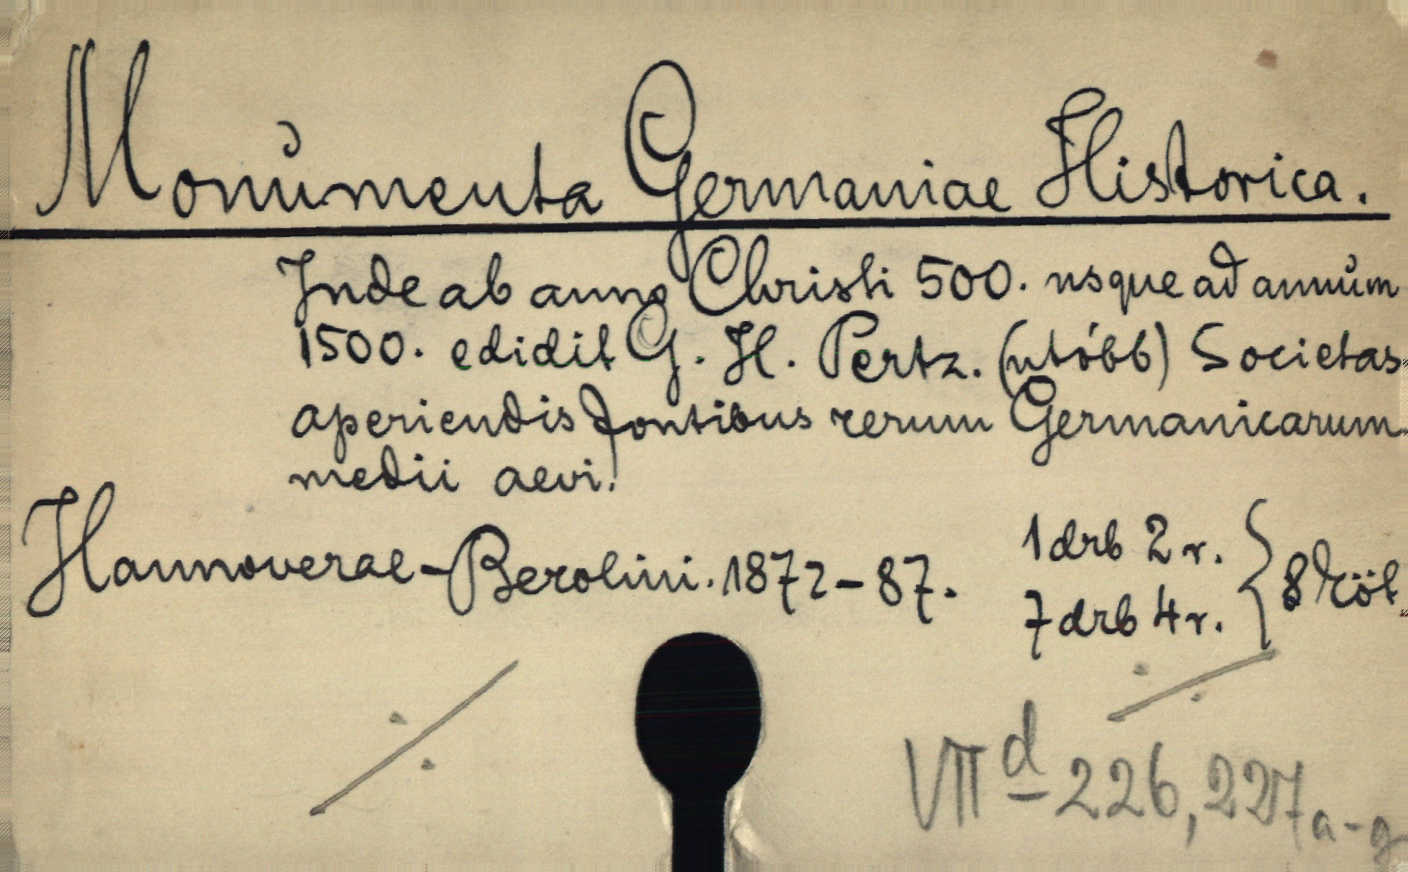 Monumenta Germaniae Historica.
Inde ab anno Christi 500. usque ad annum
1500. edidit G. H. Pertz. (utóbb) Societas
aperiendis fontibus rerum Germanicarum
medii aevi.
Hannoverae-Berolini. 1872-87.
1 drb 2 r.
7 drb 4 r.
8 köt.
VII d 226, 227 a-g